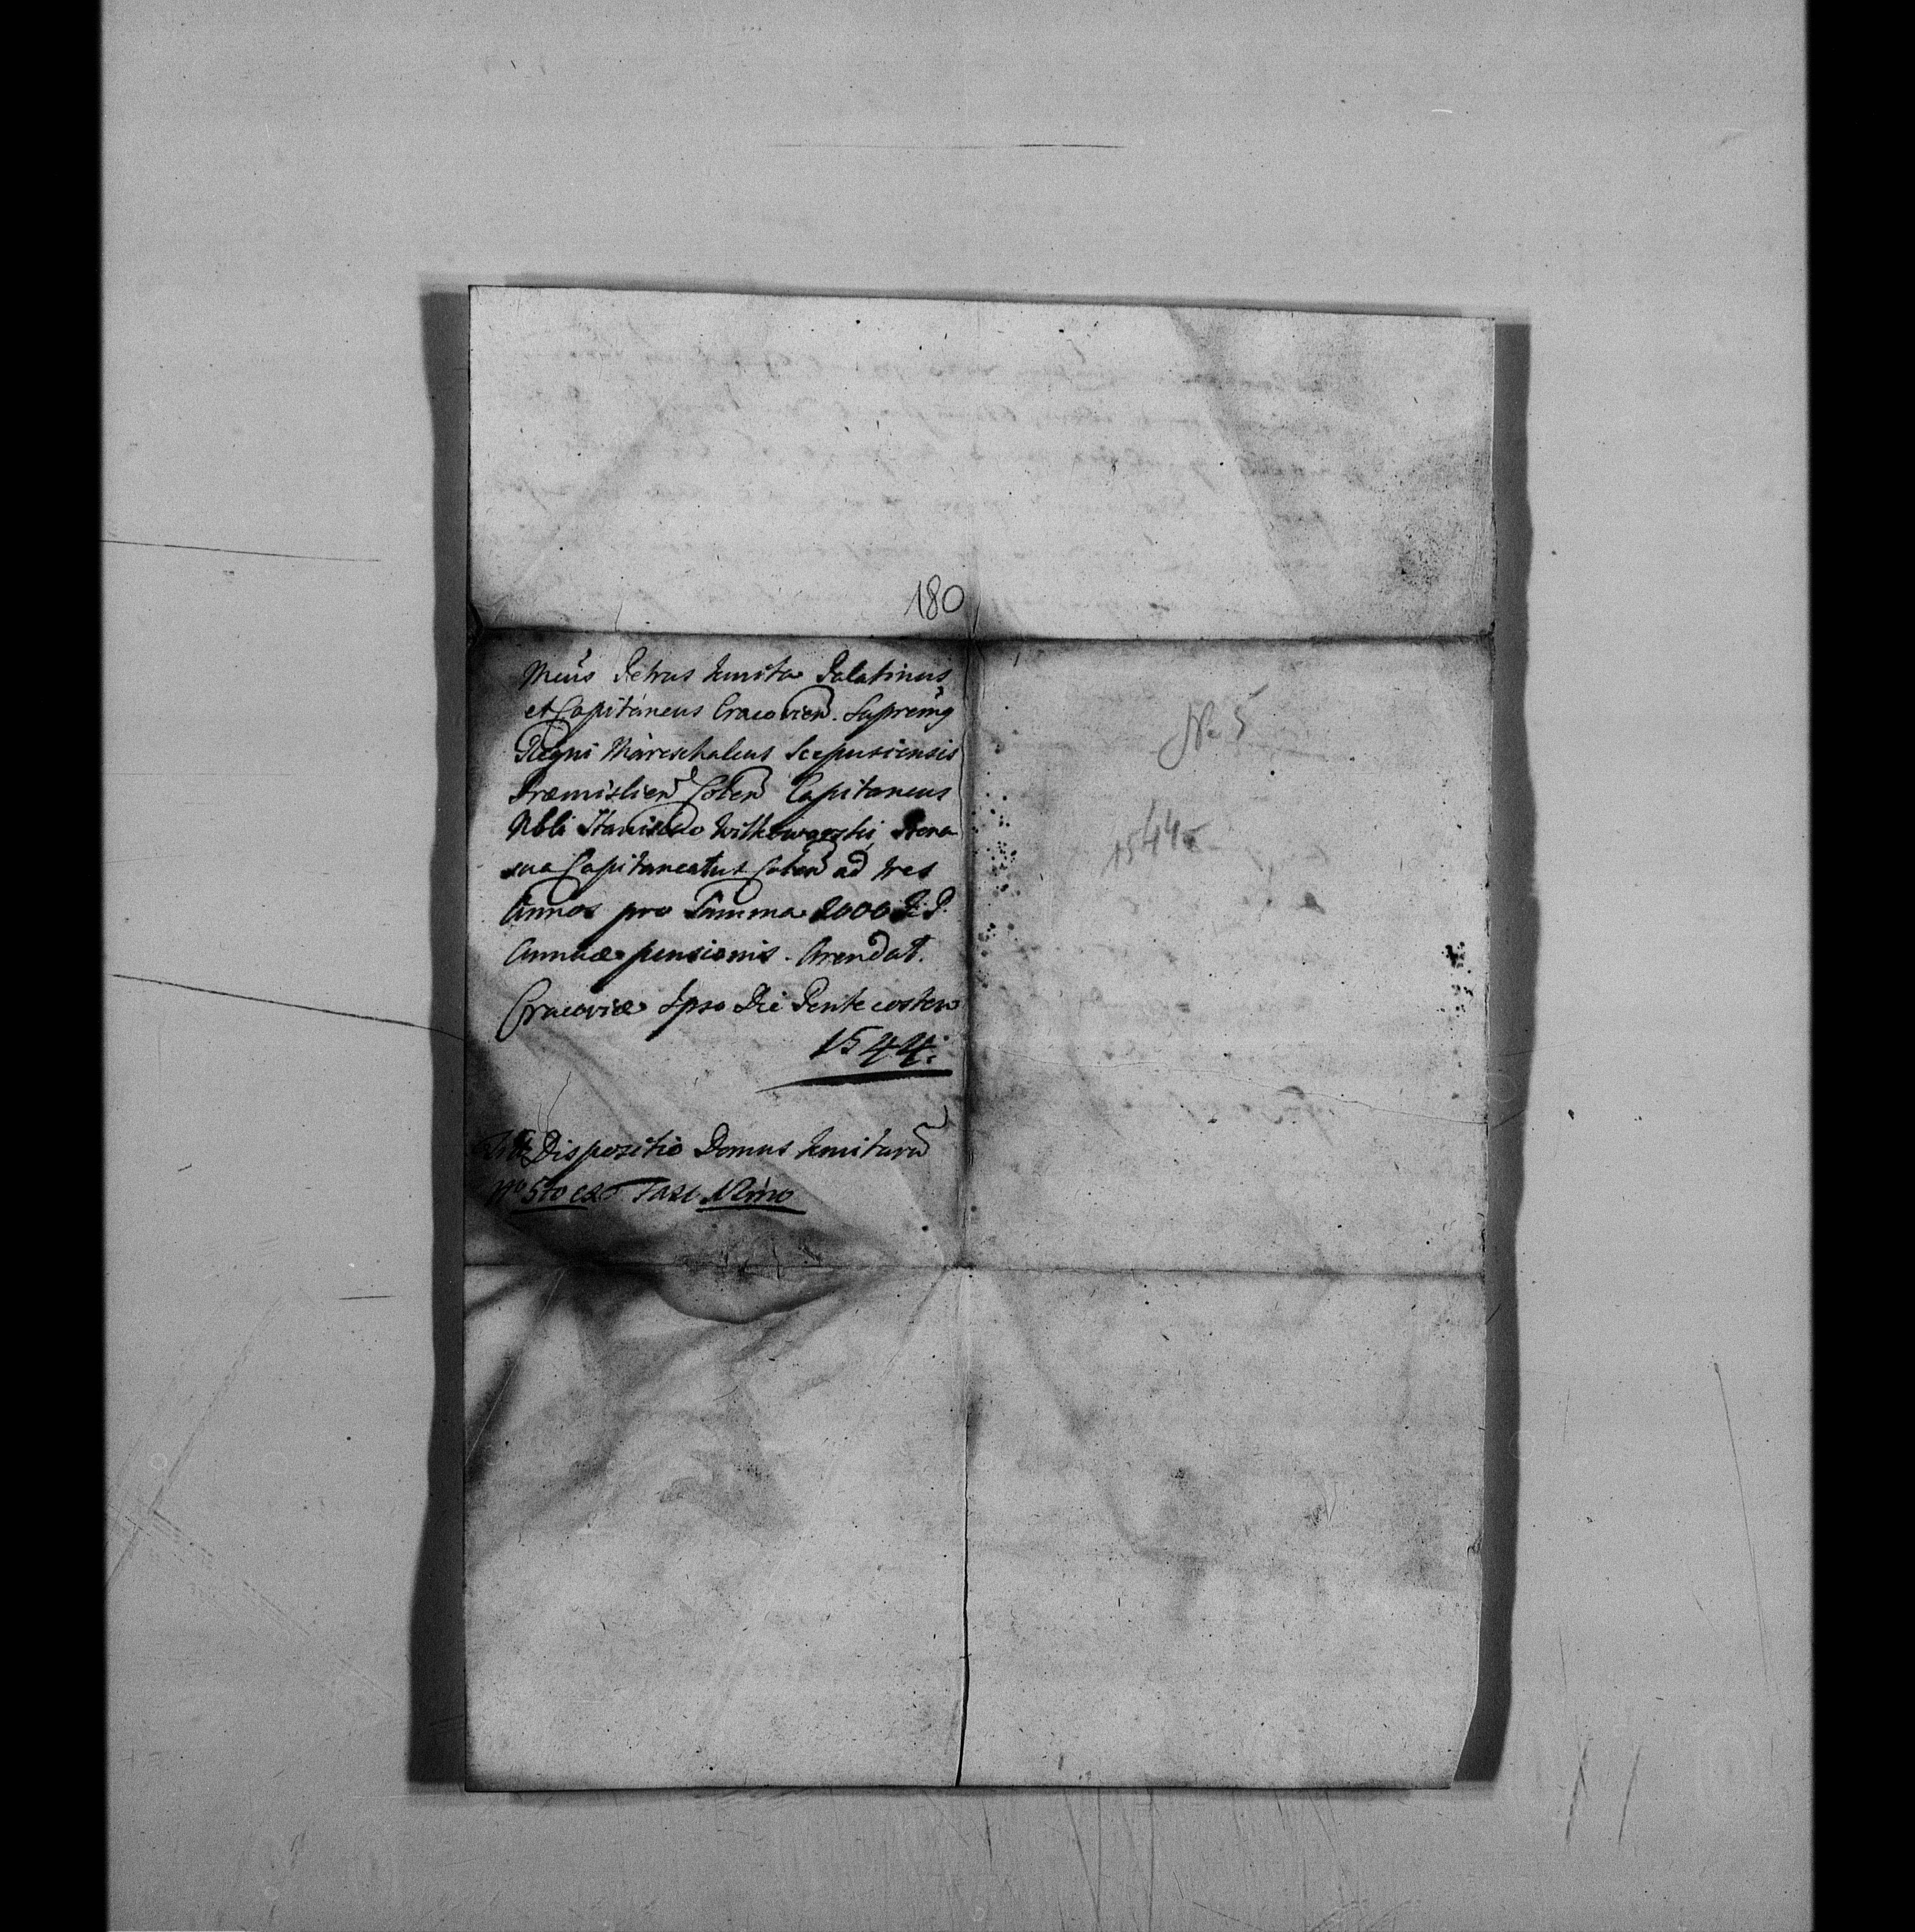 180
Mcus Petrus Kmita Palatinus
et Capitaneus Cracovien. Supremg
Regni Mareschalcus Scepusiensis
Præmislien Colen Capitaneus
Nbli Stanislao Witkowski,
sua Capitaneatus Colen ad tres
Annos pro Summa 2000
Annuæ pensionis. Arendat.
Cracoviæ Ipso Die Pentecosten
1544.
Dispozitio Domus Kmitaru
No 5to Fasc
No 5
1544